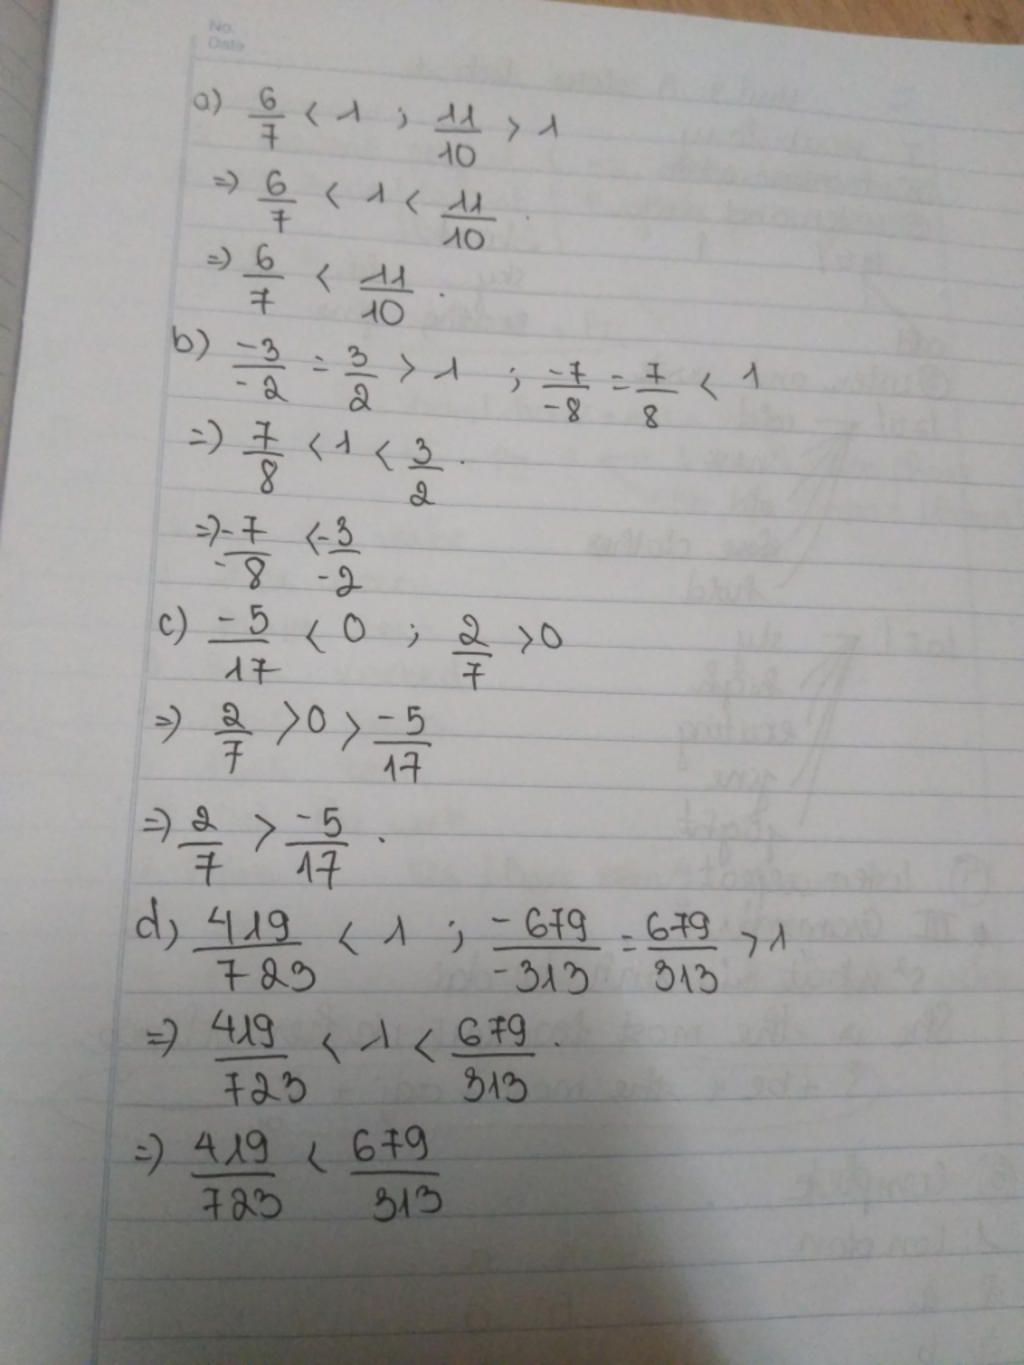 No.
Date
a) 6/7 < 1 ; 11/10 > 1
=> 6/7 < 1 < 11/10 .
=> 6/7 < 11/10 .
b) -3/-2 = 3/2 > 1 ; -7/-8 = 7/8 < 1
=> 7/8 < 1 < 3/2 .
=> -7/-8 < -3/-2
c) -5/17 < 0 ; 2/7 > 0
=> 2/7 > 0 > -5/17
=> 2/7 > -5/17 .
d) 419/723 < 1 ; -679/-313 = 679/313 > 1
=> 419/723 < 1 < 679/313 .
=> 419/723 < 679/313